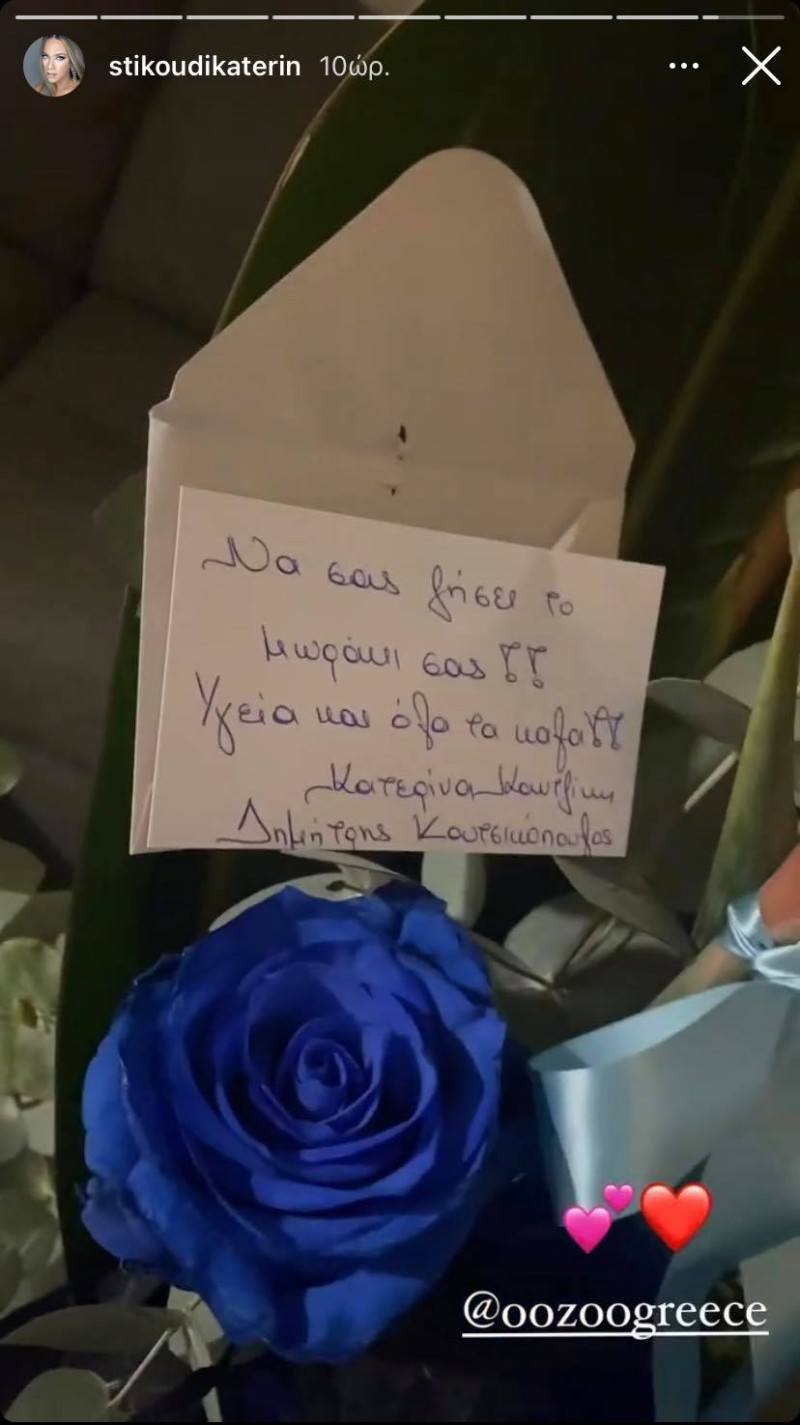 stikoudikaterin 10ώρ.
Να σας ζήσει το
μωράκι σας!!
Υγεία και όλα τα καλα!!
Κατερίνα Καυτζίκη
Δημήτρης Κουτσικόπουλος
@oozoogreece